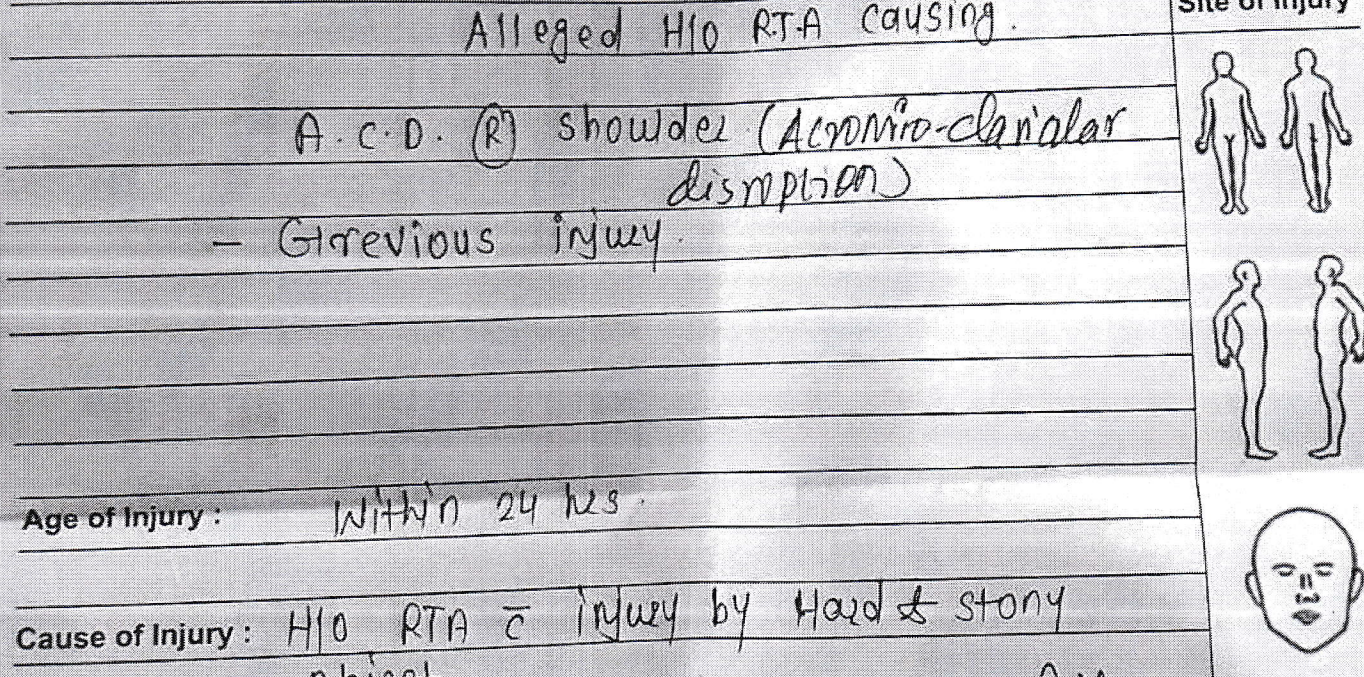 Site of Injury
Alleged H/O R.T.A causing.
A.C.D. (R) shoulder (Acromio-clavicular
disruption)
- Grevious injury.
Age of Injury : Within 24 hrs.
Cause of Injury : H/O RTA c̄ injury by Hard & stony